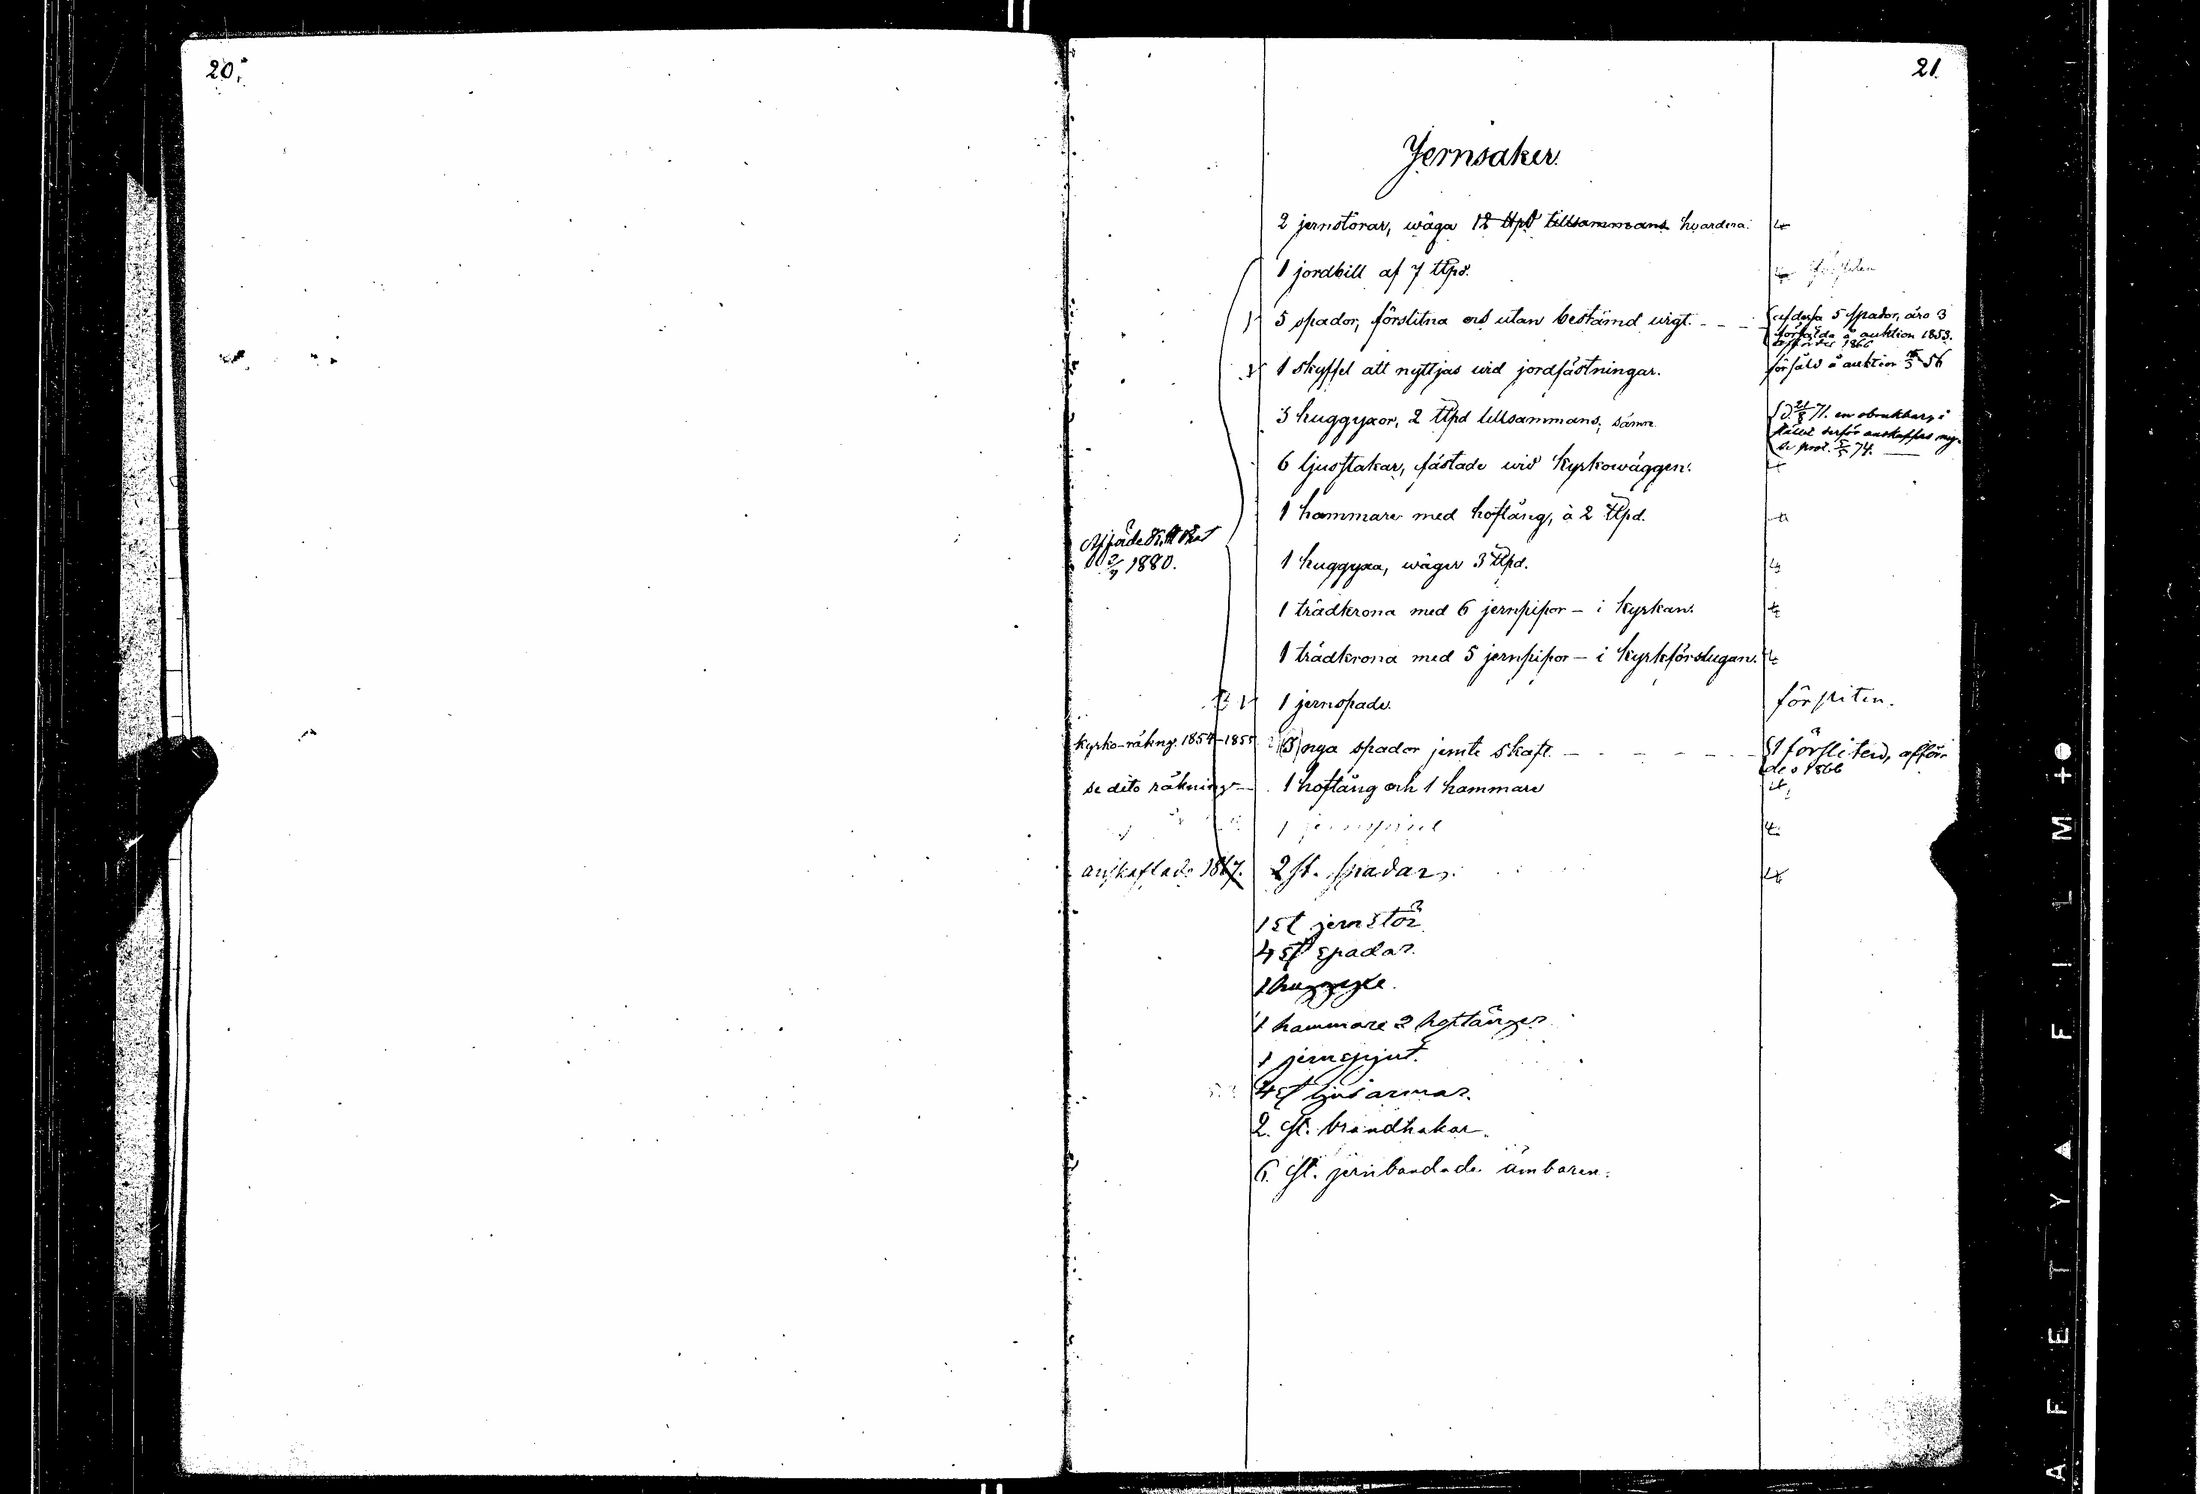 20.
21.
Jernsaker.
2 jernstörar, wäga 12 ℔pd tillsammans hvardera.
1 jordbill af 7 ℔pd.
5 spador, förslitna och utan bestämd wigt. - - -
af dessa 5 spador, äro 3
försålda å auktion 1853.
1866
1 skyffel att nyttjas wid jordfästningar.
försåld å auktion 56
3 huggyxor, 2 ℔pd tillsammans, sämre
71. en obrukbar, i
stället derför anskaffas ny
se prot. 74.
6 ljusstakar, fästade wid kyrkowäggen.
1 hammare med hoftång, à 2 ℔pd.
1880.
1 huggyxa, wäger 3 ℔pd.
1 trädkrona med 6 jernpipor - i kyrkan.
1 trädkrona med 5 jernpipor - i kyrkförstugan.
1 jernspade.
försliten.
kyrko-räkng. 1854-1855
nya spador jemte skaft. - - - - -
1 försliten, afför-
des 1866
se dito räkning -
1 hoftång och 1 hammare
1
anskaffade 1867.
2 st. spadar.
1 st jernstör
4 st spadar.
1 huggyxe.
1 hammare 2 hoftänger
1 jernspjut.
4 st ljusarmar.
2. st. brandhakar.
6. st. jernbandade ämbaren.
A F E T Y ▲ F I L M +●